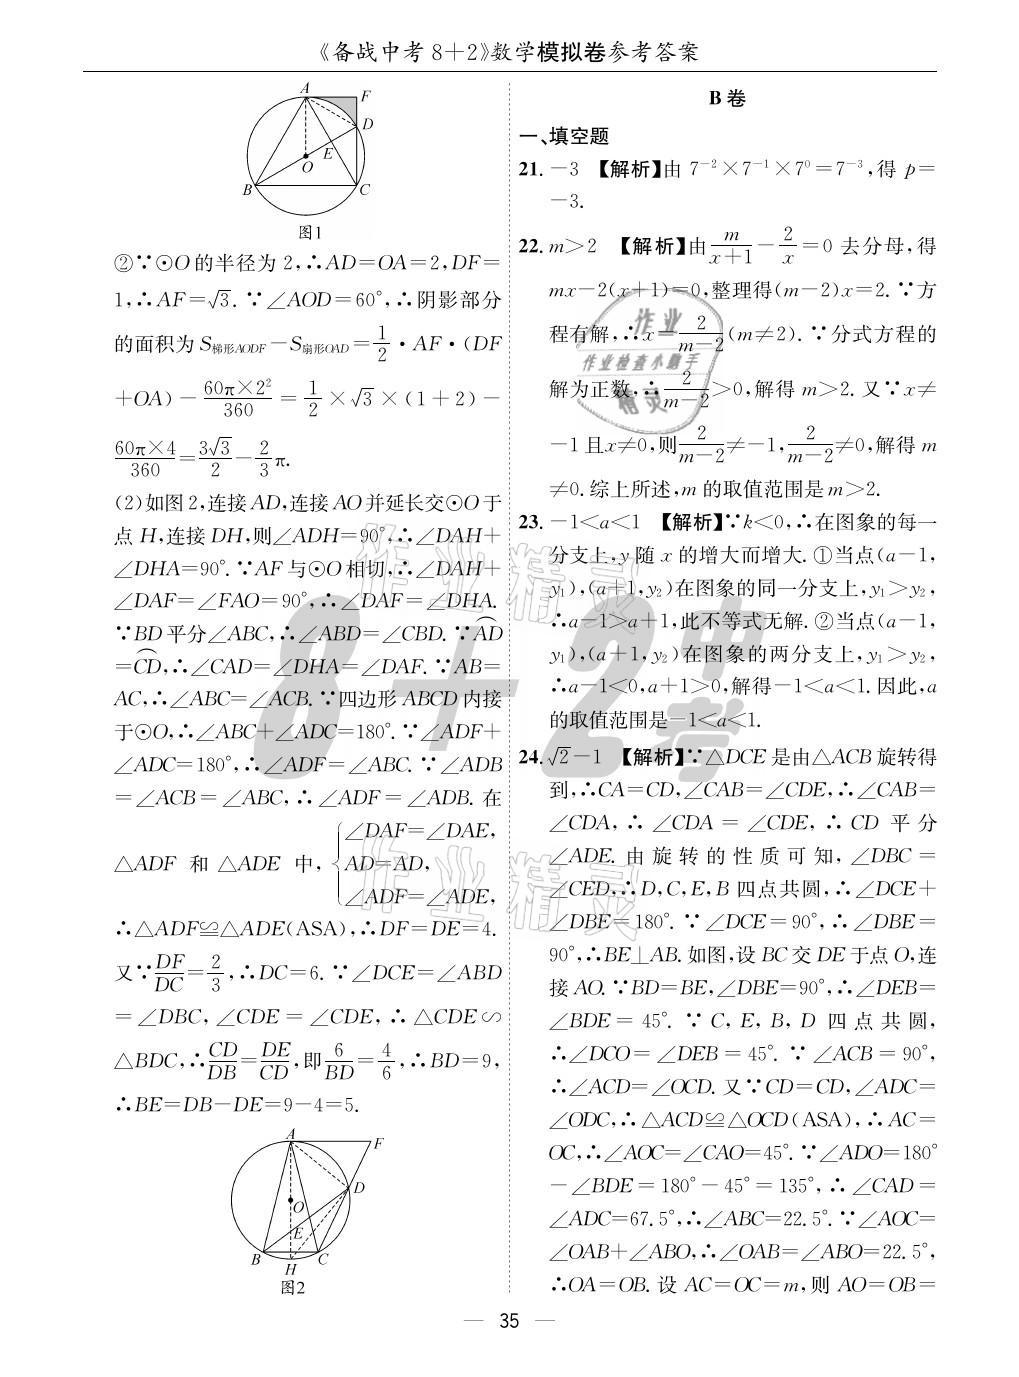 《备战中考8＋2》数学模拟卷参考答案
A
F
D
E
O
B
C
图1
②∵⊙O的半径为2,∴AD=OA=2,DF=
1,∴AF=√3. ∵∠AOD=60°,∴阴影部分
的面积为S梯形AODF－S扇形OAD=1/2·AF·(DF
+OA)－60π×2²/360=1/2×√3×(1+2)－
60π×4/360=3√3/2－2/3π.
(2)如图2,连接AD,连接AO并延长交⊙O于
点H,连接DH,则∠ADH=90°,∴∠DAH+
∠DHA=90°.∵AF与⊙O相切,∴∠DAH+
∠DAF=∠FAO=90°,∴∠DAF=∠DHA.
∵BD平分∠ABC,∴∠ABD=∠CBD.∵A͡D
=C͡D,∴∠CAD=∠DHA=∠DAF.∵AB=
AC,∴∠ABC=∠ACB.∵四边形ABCD内接
于⊙O,∴∠ABC+∠ADC=180°.∵∠ADF+
∠ADC=180°,∴∠ADF=∠ABC.∵∠ADB
=∠ACB=∠ABC,∴∠ADF=∠ADB.在
△ADF和△ADE中,{∠DAF=∠DAE,
AD=AD,
∠ADF=∠ADE,
∴△ADF≌△ADE(ASA),∴DF=DE=4.
又∵DF/DC=2/3,∴DC=6.∵∠DCE=∠ABD
=∠DBC,∠CDE=∠CDE,∴△CDE∽
△BDC,∴CD/DB=DE/CD,即6/BD=4/6,∴BD=9,
∴BE=DB－DE=9－4=5.
A
F
D
O
E
B
H
C
图2
B卷
一、填空题
21.－3 【解析】由7⁻²×7⁻¹×7⁰=7⁻³,得p=
－3.
22.m>2 【解析】由m/(x+1)－2/x=0去分母,得
mx－2(x+1)=0,整理得(m－2)x=2.∵方
程有解,∴x=2/(m－2)(m≠2).∵分式方程的
解为正数,∴2/(m－2)>0,解得m>2.又∵x≠
－1且x≠0,则2/(m－2)≠－1,2/(m－2)≠0,解得m
≠0.综上所述,m的取值范围是m>2.
23.－1<a<1 【解析】∵k<0,∴在图象的每一
分支上,y随x的增大而增大.①当点(a－1,
y₁),(a+1,y₂)在图象的同一分支上,y₁>y₂,
∴a－1>a+1,此不等式无解.②当点(a－1,
y₁),(a+1,y₂)在图象的两分支上,y₁>y₂,
∴a－1<0,a+1>0,解得－1<a<1.因此,a
的取值范围是－1<a<1.
24.√2－1 【解析】∵△DCE是由△ACB旋转得
到,∴CA=CD,∠CAB=∠CDE,∴∠CAB=
∠CDA,∴∠CDA=∠CDE,∴CD平分
∠ADE.由旋转的性质可知,∠DBC=
∠CED,∴D,C,E,B四点共圆,∴∠DCE+
∠DBE=180°.∵∠DCE=90°,∴∠DBE=
90°,∴BE⊥AB.如图,设BC交DE于点O,连
接AO.∵BD=BE,∠DBE=90°,∴∠DEB=
∠BDE=45°.∵C,E,B,D四点共圆,
∴∠DCO=∠DEB=45°.∵∠ACB=90°,
∴∠ACD=∠OCD.又∵CD=CD,∠ADC=
∠ODC,∴△ACD≌△OCD(ASA),∴AC=
OC,∴∠AOC=∠CAO=45°.∵∠ADO=180°
－∠BDE=180°－45°=135°,∴∠CAD=
∠ADC=67.5°,∴∠ABC=22.5°.∵∠AOC=
∠OAB+∠ABO,∴∠OAB=∠ABO=22.5°,
∴OA=OB.设AC=OC=m,则AO=OB=
作业
作业检查小助手
精灵
作业精灵
8＋2中考
作业精灵
— 35 —